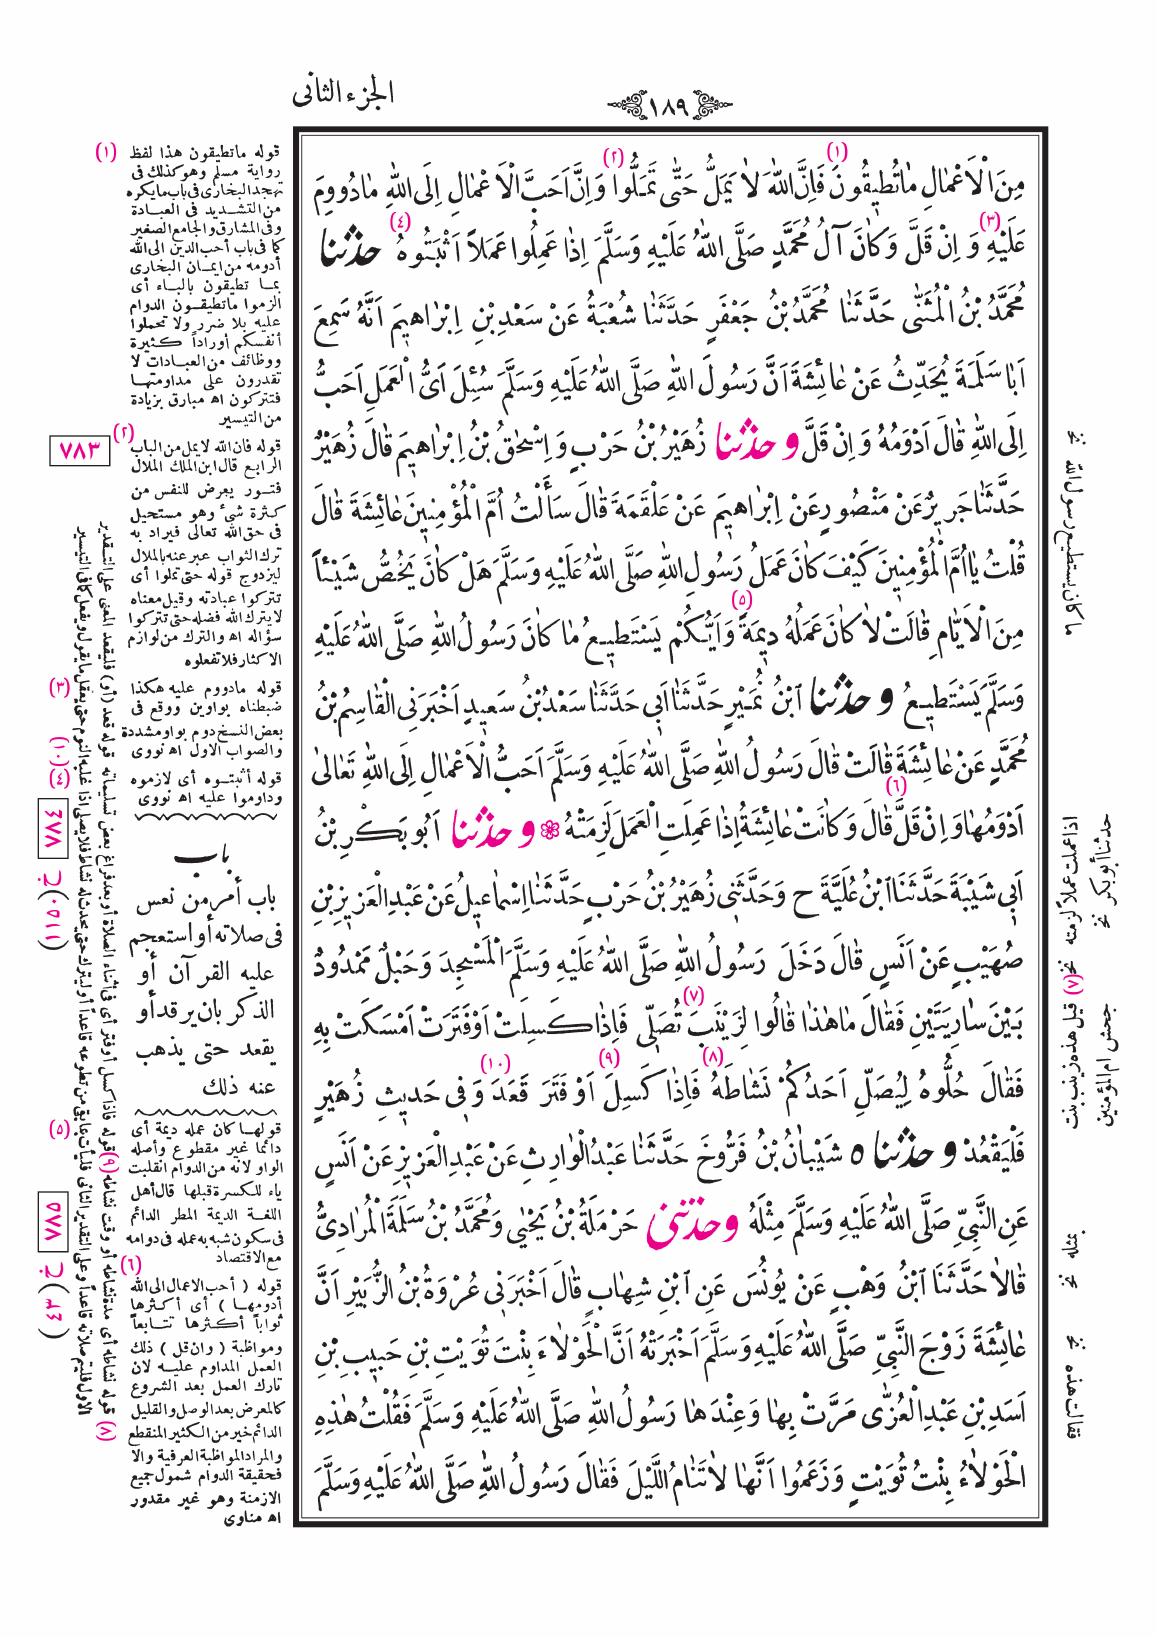 الجزء الثانى
١٨٩
مِنَ الْاَعْمَالِ مَاتُطِيقُونَ (١) فَاِنَّ اللهَ لَا يَمَلُّ حَتّٰى تَمَلُّوا (٢) وَاِنَّ اَحَبَّ الْاَعْمَالِ اِلَى اللهِ مَادُووِمَ
عَلَيْهِ (٣) وَ اِنْ قَلَّ وَكَانَ آلُ مُحَمَّدٍ صَلَّى اللهُ عَلَيْهِ وَسَلَّمَ اِذَا عَمِلُوا عَمَلاً اَثْبَتُوهُ (٤) حدثنا
مُحَمَّدُ بْنُ الْمُثَنّٰى حَدَّثَنَا مُحَمَّدُ بْنُ جَعْفَرٍ حَدَّثَنَا شُعْبَةُ عَنْ سَعْدِ بْنِ اِبْرَاهِيمَ اَنَّهُ سَمِعَ
اَبَا سَلَمَةَ يُحَدِّثُ عَنْ عَائِشَةَ اَنَّ رَسُولَ اللهِ صَلَّى اللهُ عَلَيْهِ وَسَلَّمَ سُئِلَ اَىُّ الْعَمَلِ اَحَبُّ
اِلَى اللهِ قَالَ اَدْوَمُهُ وَ اِنْ قَلَّ و حدثنا زُهَيْرُ بْنُ حَرْبٍ وَ اِسْحٰقُ بْنُ اِبْرَاهِيمَ قَالَ زُهَيْرٌ
حَدَّثَنَا جَرِيرٌ عَنْ مَنْصُورٍ عَنْ اِبْرَاهِيمَ عَنْ عَلْقَمَةَ قَالَ سَأَلْتُ اُمَّ الْمُؤْمِنِينَ عَائِشَةَ قَالَ
قُلْتُ يَا اُمَّ الْمُؤْمِنِينَ كَيْفَ كَانَ عَمَلُ رَسُولِ اللهِ صَلَّى اللهُ عَلَيْهِ وَسَلَّمَ هَلْ كَانَ يَخُصُّ شَيْئاً
مِنَ الْاَيَّامِ قَالَتْ لَا كَانَ عَمَلُهُ دِيمَةً (٥) وَاَيُّكُمْ يَسْتَطِيعُ مَا كَانَ رَسُولُ اللهِ صَلَّى اللهُ عَلَيْهِ
وَسَلَّمَ يَسْتَطِيعُ و حدثنا ابْنُ نُمَيْرٍ حَدَّثَنَا اَبِى حَدَّثَنَا سَعْدُ بْنُ سَعِيدٍ اَخْبَرَنِى الْقَاسِمُ بْنُ
مُحَمَّدٍ عَنْ عَائِشَةَ قَالَتْ قَالَ رَسُولُ اللهِ صَلَّى اللهُ عَلَيْهِ وَسَلَّمَ اَحَبُّ الْاَعْمَالِ اِلَى اللهِ تَعَالٰى
اَدْوَمُهَا وَ اِنْ قَلَّ (٦) قَالَ وَكَانَتْ عَائِشَةُ اِذَا عَمِلَتِ الْعَمَلَ لَزِمَتْهُ و حدثنا اَبُو بَكْرِ بْنُ
اَبِى شَيْبَةَ حَدَّثَنَا ابْنُ عُلَيَّةَ ح وَحَدَّثَنِى زُهَيْرُ بْنُ حَرْبٍ حَدَّثَنَا اِسْمَاعِيلُ عَنْ عَبْدِ الْعَزِيزِ بْنِ
صُهَيْبٍ عَنْ اَنَسٍ قَالَ دَخَلَ رَسُولُ اللهِ صَلَّى اللهُ عَلَيْهِ وَسَلَّمَ الْمَسْجِدَ وَحَبْلٌ مَمْدُودٌ
بَيْنَ سَارِيَتَيْنِ فَقَالَ مَا هٰذَا قَالُوا لِزَيْنَبَ (٧) تُصَلِّى فَاِذَا كَسِلَتْ اَوْ فَتَرَتْ اَمْسَكَتْ بِهِ
فَقَالَ حُلُّوهُ لِيُصَلِّ اَحَدُكُمْ نَشَاطَهُ (٨) فَاِذَا كَسِلَ (٩) اَوْ فَتَرَ قَعَدَ (١٠) وَ فِى حَدِيثِ زُهَيْرٍ
فَلْيَقْعُدْ و حدثنا ٥ شَيْبَانُ بْنُ فَرُّوخَ حَدَّثَنَا عَبْدُ الْوَارِثِ عَنْ عَبْدِ الْعَزِيزِ عَنْ اَنَسٍ
عَنِ النَّبِىِّ صَلَّى اللهُ عَلَيْهِ وَسَلَّمَ مِثْلَهُ وحدثنى حَرْمَلَةُ بْنُ يَحْيٰى وَمُحَمَّدُ بْنُ سَلَمَةَ الْمُرَادِىُّ
قَالَا حَدَّثَنَا ابْنُ وَهْبٍ عَنْ يُونُسَ عَنِ ابْنِ شِهَابٍ قَالَ اَخْبَرَنِى عُرْوَةُ بْنُ الزُّبَيْرِ اَنَّ
عَائِشَةَ زَوْجَ النَّبِىِّ صَلَّى اللهُ عَلَيْهِ وَسَلَّمَ اَخْبَرَتْهُ اَنَّ الْحَوْلَاءَ بِنْتَ تُوَيْتِ بْنِ حَبِيبِ بْنِ
اَسَدِ بْنِ عَبْدِ الْعُزّٰى مَرَّتْ بِهَا وَعِنْدَهَا رَسُولُ اللهِ صَلَّى اللهُ عَلَيْهِ وَسَلَّمَ فَقُلْتُ هٰذِهِ
الْحَوْلَاءُ بِنْتُ تُوَيْتٍ وَ زَعَمُوا اَنَّهَا لَا تَنَامُ اللَّيْلَ فَقَالَ رَسُولُ اللهِ صَلَّى اللهُ عَلَيْهِ وَسَلَّمَ
ما كان يستطيع رسول الله نخ
حدثنا أبو بكر نخ
اذا عملت عملاً لزمته نخ
(٧) قيل هذه زينب بنت
جحش ام المؤمنين
بمثله نخ
فقالت هذه نخ
(١) قوله ماتطيقون هذا لفظ
رواية مسلم وهو كذلك فى
تهجد البخارى فى باب مايكره
من التشديد فى العبادة
وفى المشارق والجامع الصغير
كما فى باب أحب الدين الى الله
أدومه من ايمان البخارى
بما تطيقون بالباء أى
الزموا ماتطيقون الدوام
عليه بلا ضرر ولا تحملوا
أنفسكم أوراداً كثيرة
ووظائف من العبادات لا
تقدرون على مداومتها
فتتركون اه مبارق بزيادة
من التيسير
(٢) قوله فان الله لايمل من الباب
الرابع قال ابن الملك الملال
فتور يعرض للنفس من
كثرة شىء وهو مستحيل
فى حق الله تعالى فيراد به
ترك الثواب عبر عنه بالملال
ليزدوج قوله حتى تملوا أى
تتركوا عبادته وقيل معناه
لايترك الله فضله حتى تتركوا
سؤاله اه والترك من لوازم
الاكثار فلا تفعلوه
(٣) قوله مادووم عليه هكذا
ضبطناه بواوين ووقع فى
بعض النسخ دوم بواو مشددة
والصواب الاول اه نووى
(٤) قوله أثبتوه أى لازموه
وداوموا عليه اه نووى
٧٨٣
باب
باب أمر من نعس
فى صلاته أو استعجم
عليه القرآن أو
الذكر بان يرقد أو
يقعد حتى يذهب
عنه ذلك
(٥) قولها كان عمله ديمة أى
دائما غير مقطوع وأصله
الواو لانه من الدوام انقلبت
ياء للكسرة قبلها قال أهل
اللغة الديمة المطر الدائم
فى سكون شبه به عمله فى دوامه
مع الاقتصاد
(٦) قوله ( أحب الاعمال الى الله
أدومها ) أى أكثرها
ثواباً أكثرها تتابعاً
ومواظبة ( وان قل ) ذلك
العمل المداوم عليه لان
تارك العمل بعد الشروع
كالمعرض بعد الوصل والقليل
الدائم خير من الكثير المنقطع
والمراد المواظبة العرفية والا
فحقيقة الدوام شمول جميع
الازمنة وهو غير مقدور
اه مناوى
(٨) قوله نشاطه أى مدة نشاطه أو وقت نشاطه (٩) قوله فاذا كسل أو فتر أى فى اثناء الصلاة أو بعد فراغ بعض تسليماته (١٠) قوله قعد (أو) فليقعد المعنى على التقدير
الاول فليتم صلاته قاعداً وعلى التقدير الثانى فليأت بما بقى من تطوعه قاعداً أو ليترك حتى يحدث له نشاط فلا يصلى اذا غلبه النوم حتى يعقل ما يقول ويفعل كما فى التيسير